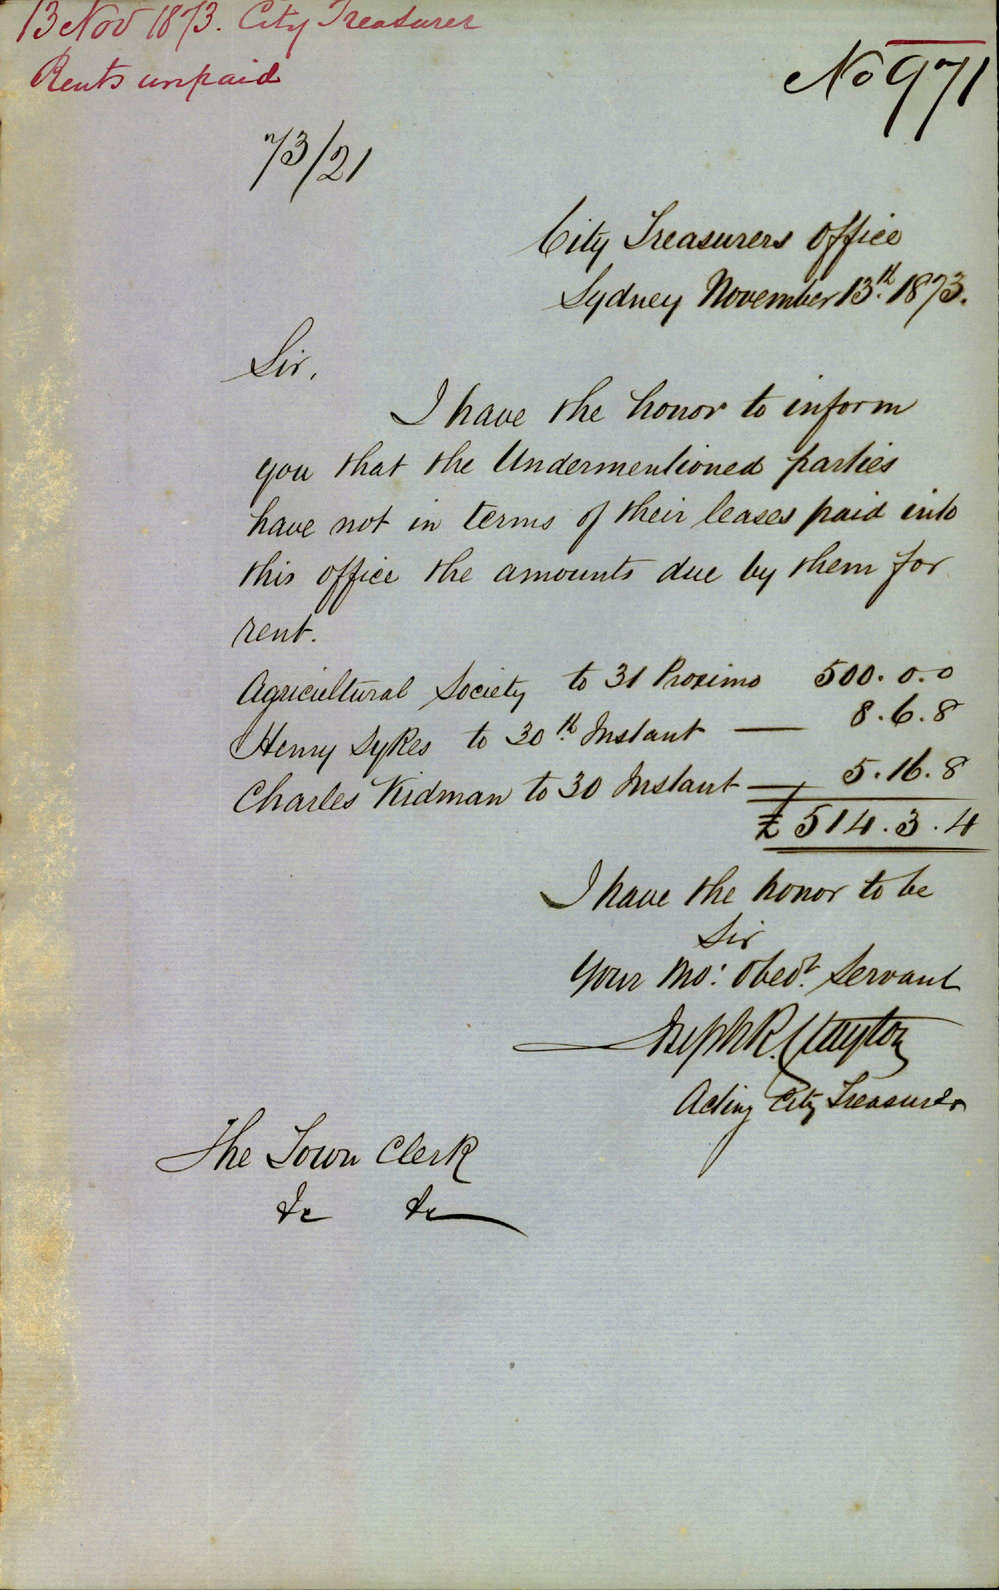 13 Nov 1873. City Treasurer
Rents unpaid
No 971
73/21
City Treasurers Office
Sydney November 13th. 1873.
Sir,
I have the honor to inform
you that the Undermentioned parties
have not in terms of their leases paid into
this office the amounts due by them for
rent.
Agricultural Society to 31 Proximo 500.0.0
Henry Sykes to 30th. Instant — 8.6.8
Charles Kidman to 30 Instant — 5.16.8
£514.3.4
I have the honor to be
Sir
Your Mo: Obedt. Servant
Josephh R. Clayton
Acting City Treasurer
The Town Clerk
&c &c